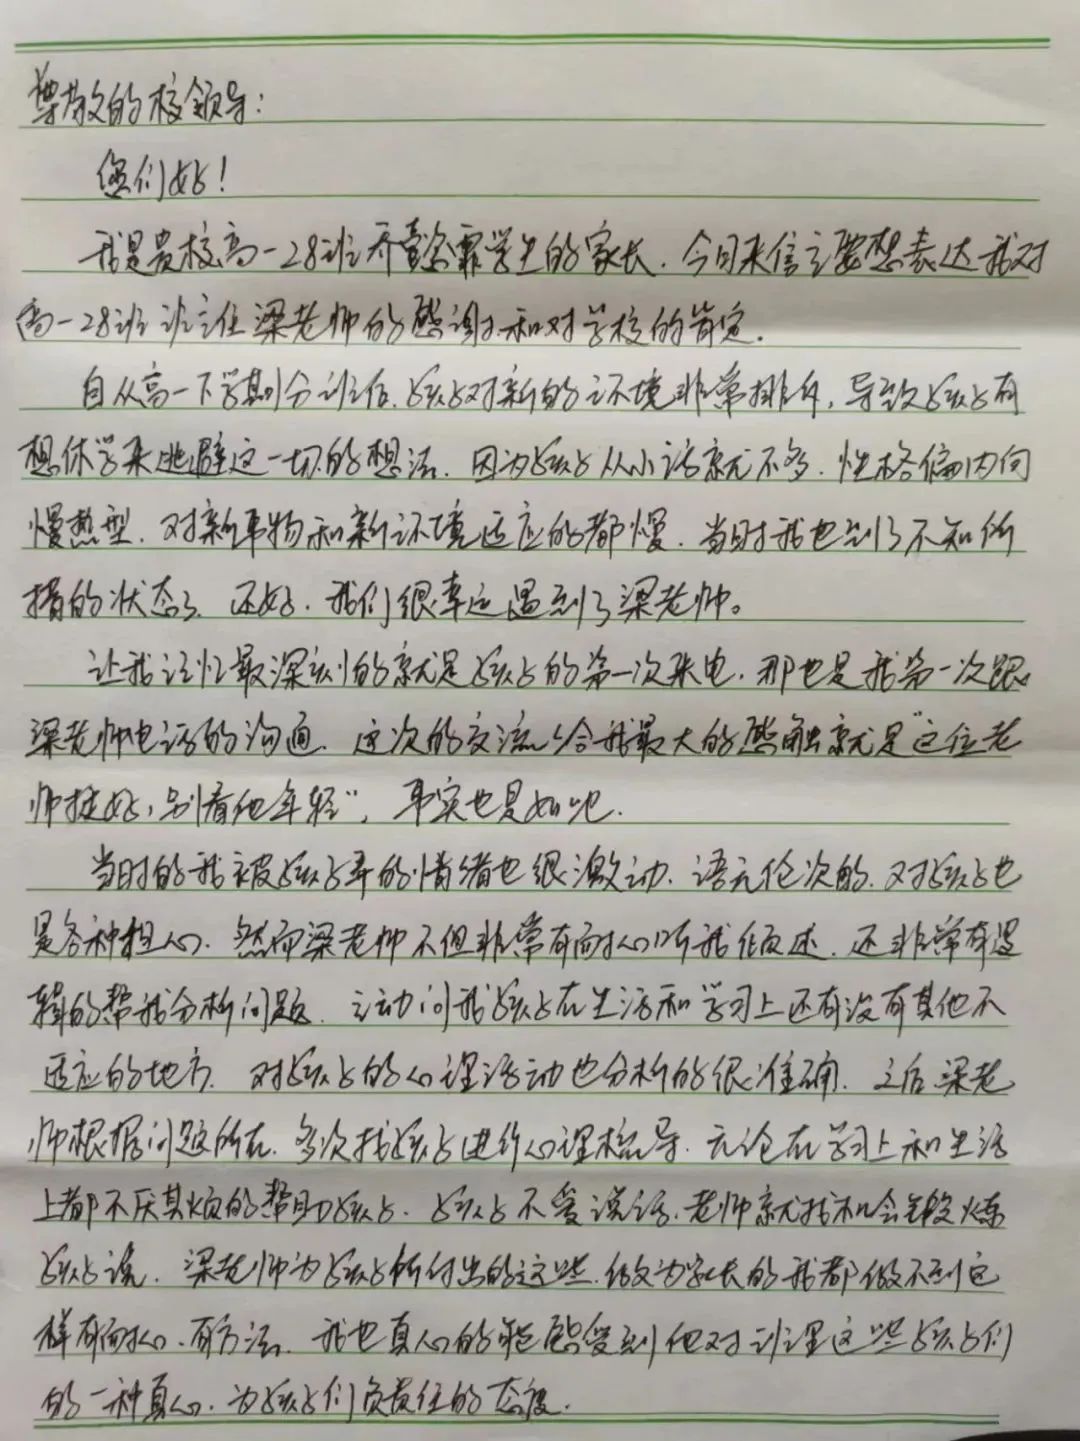 尊敬的校领导：
您们好！
我是贵校高一28班乔懿霏学生的家长．今日来信主要想表达我对
高一28班班主任梁老师的感谢和对学校的肯定．
自从高一下学期分班后．孩子对新的环境非常排斥，导致孩子有
想休学来逃避这一切的想法．因为孩子从小话就不多．性格偏内向
慢热型．对新事物和新环境适应的都慢．当时我也到了不知所
措的状态了．还好．我们很幸运遇到了梁老师。
让我记忆最深刻的就是孩子的第一次来电．那也是我第一次跟
梁老师电话的沟通．这次的交流给我最大的感触就是“这位老
师挺好，别看他年轻”，事实也是如此．
当时的我被孩子弄的情绪也很激动．语无伦次的．对孩子也
是各种担心．然而梁老师不但非常有耐心听我倾述．还非常有逻
辑的帮我分析问题．主动问我孩子在生活和学习上还有没有其他不
适应的地方．对孩子的心理活动也分析的很准确．之后梁老
师根据问题所在．多次找孩子进行心理梳导．无论在学习上和生活
上都不厌其烦的帮助孩子．孩子不爱说话．老师就找机会锻炼
孩子说．梁老师为孩子所付出的这些．做为家长的我都做不到这
样有耐心．有方法．我也真心的能感受到他对班里这些孩子们
的一种真心．为孩子们负责任的态度．